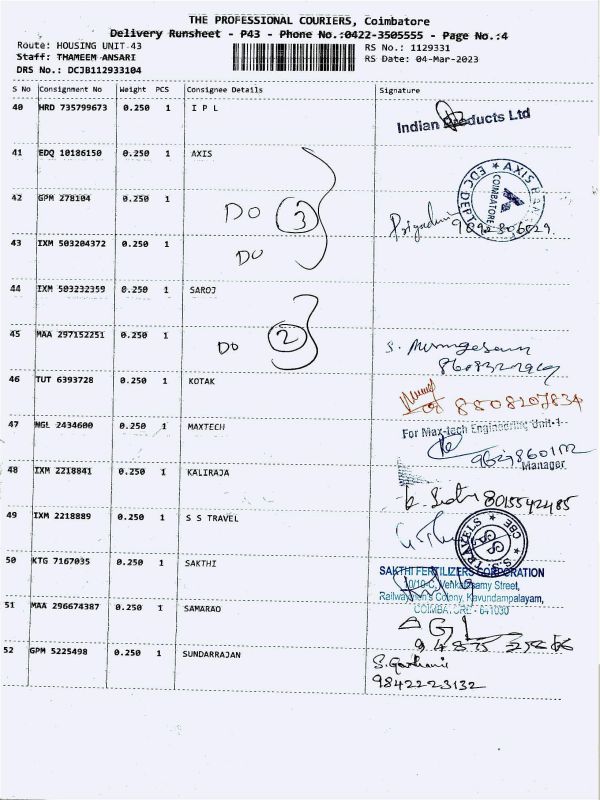 THE PROFESSIONAL COURIERS, Coimbatore
Delivery Runsheet - P43 - Phone No.:0422-3505555 - Page No.:4
Route: HOUSING UNIT 43 RS No.: 1129331
Staff: THAMEEM ANSARI RS Date: 04-Mar-2023
DRS No.: DCJB112933104
S No Consignment No Weight PCS Consignee Details Signature
40 HRD 735799673 0.250 1 I P L
Indian Products Ltd
41 EDQ 10186150 0.250 1 AXIS
AXIS BANK EDC DEPT COIMBATORE
42 GPM 278104 0.250 1 DO 3
43 IXM 503204372 0.250 1 DO
44 IXM 503232359 0.250 1 SAROJ
45 MAA 297152251 0.250 1 DO 2
46 TUT 6393728 0.250 1 KOTAK 8808207834
47 NGL 2434600 0.250 1 MAXTECH For Max-tech Engineering Unit-1
Manager
48 IXM 2218841 0.250 1 KALIRAJA
8015542485
49 IXM 2218889 0.250 1 S S TRAVEL
S.S. TRAVELS CBE
50 KTG 7167035 0.250 1 SAKTHI SAKTHI FERTILIZERS CORPORATION
Venkatasamy Street,
Railwaymen's Colony, Kavundampalayam,
COIMBATORE - 641030
51 MAA 296674387 0.250 1 SAMARAO
52 GPM 5225498 0.250 1 SUNDARRAJAN
9842223132